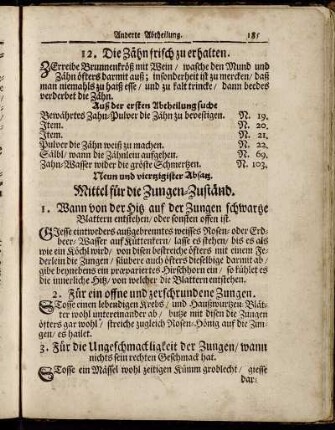 Anderte Abtheilung. 185
12. Die Zähn frisch zu erhalten.
ZErreibe Brunnenkröß mit Wein / wasche den Mund und
Zähn öfters darmit auß; insonderheit ist zu mercken / daß
man niemahls zu haiß esse / und zu kalt trincke / dann beedes
verderbet die Zähn.
Auß der ersten Abtheilung suche
Bewährtes Zahn-Pulver die Zähn zu bevestigen. N. 19.
Item. N. 20.
Item. N. 21.
Pulver die Zähn weiß zu machen. N. 22.
Sälbl / wann die Zähnlein aufgehen. N. 69.
Zahn-Wasser wider die gröste Schmertzen. N. 103.
Neun und vierzigister Absatz.
Mittel für die Zungen-Zuständ.
1. Wann von der Hitz auf der Zungen schwartze
Blattern entstehen / oder sonsten offen ist.
GIesse eintweders außgebrenntes weisses Rosen- oder Erd-
beer-Wasser auf Küttenkern / lasse es stehen / biß es als
wie ein Köchl wird / von disen bestreiche öfters mit einem Fe-
derlein die Zungen / säubere auch öfters dieselbige darmit ab /
gibe beynebens ein præpariertes Hirschhorn ein / so kühlet es
die innerliche Hitz / von welcher die Blattern entstehen.
2. Für ein offne und zerschrundene Zungen.
STosse einen lebendigen Krebs / und Hauswurtzen-Blät-
ter wohl untereinander ab / butze mit disen die Zungen
öfters gar wohl / streiche zugleich Rosen-Hönig auf die Zun-
gen / es hailet.
3. Für die Ungeschmackligkeit der Zungen / wann
nichts sein rechten Geschmack hat.
STosse ein Mässel wohl zeitigen Kümm groblecht / giesse
dar-